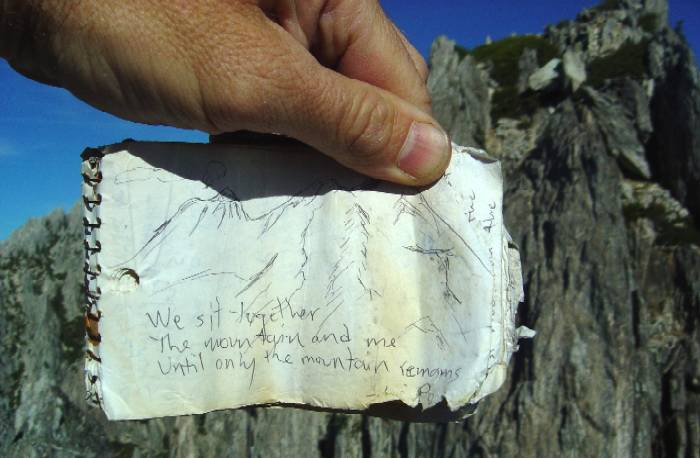 We sit together
The mountain and me
Until only the mountain remains
- Li Po
the
the